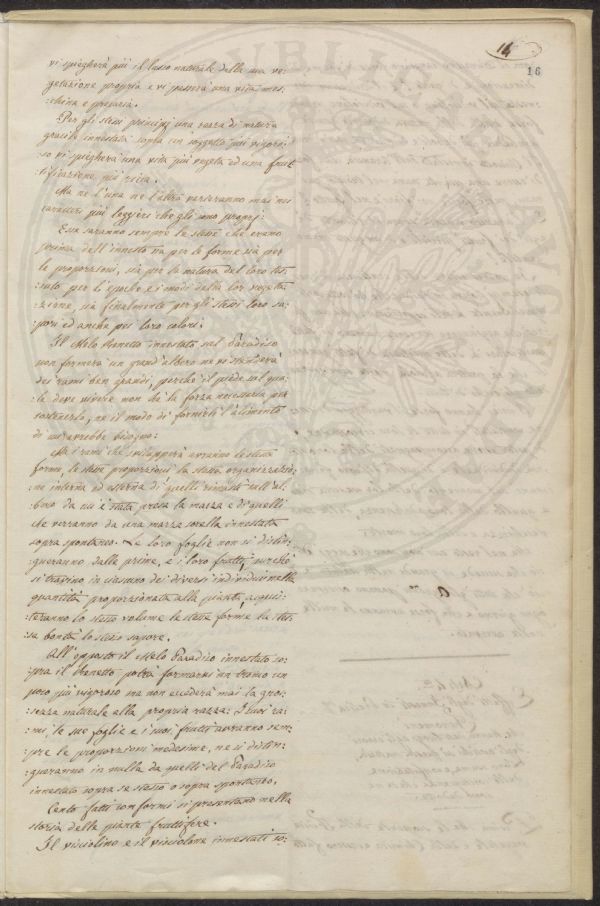 14
16
vi spiegherà più il lusso naturale della sua ve:
getazione propria e vi passerà una vita mes:
china e precaria.
Per gli stessi principj una razza di natura
gracile innestata sopra un soggetto più vigoro:
so vi spiegherà una vita più vegeta ed una frut
tificazione più ricca.
Ma ne l'una ne l'altra verseranno mai nei
caratteri più leggieri che gli sono proprj:
Esse saranno sempre le stesse che erano
prima dell'innesto sia per le forme sia per
le proporzioni, sia per la natura del loro tes:
suto per l'epoche e i modi della lor vegeta:
zione, sia finalmente per gli stessi loro sa:
pori ed anche pei loro colori.
Il Melo Renetto innestato sul Paradiso
non formerà un grand'albero ne si stenderà
dei rami ben grandi, perchè il piede sul qua:
le deve vivere non ha la forza necessaria per
sostenerlo, ne il modo di fornirli l'alimento
di cui avrebbe bisogno:
Ma i rami che svilupperà avranno le stesse
forme, le stesse proporzioni la stessa organizzazio:
ne interna ed esterna di quelli rimasti sull'al:
bero da cui è stata presa la mazza e di quelli
che verranno da una mazza sorella innestata
sopra spontaneo. Le loro foglie non si distin:
gueranno dalle prime, e i loro frutti, purchè
si trovino in ciascuno dei diversi individui nella
quantità proporzionata alla pianta, acqui:
steranno lo stesso volume le stesse forme la stes:
sa bontà lo stesso sapore.
All'opposto il Melo Paradiso innestato so:
pra il Renetto potrà formarsi un tronco un
poco più vigoroso ma non eccederà mai la gros:
sezza naturale alla propria razza: I suoi ra:
mi, le sue foglie e i suoi frutti avranno sem:
pre le proporzioni medesime, ne si distin:
gueranno in nulla da quelli del Paradiso
innestato sopra se stesso o sopra spontaneo.
Cento fatti conformi si presentano nella
storia delle piante fruttifere.
Il visciolino e il visciolone innestati so: